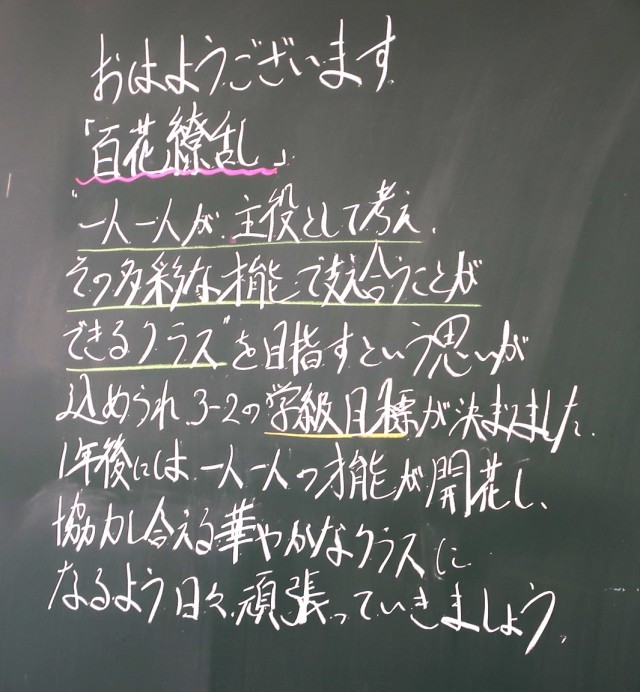 おはようございます
「百花繚乱」
"一人一人が、主役として考え、
その多彩な才能で支え合うことが
できるクラス"を目指すという思いが
込められ、3-2の学級目標が決まりました。
1年後には、一人一人の才能が開花し、
協力し合える華やかなクラスに
なるよう日々、頑張っていきましょう。